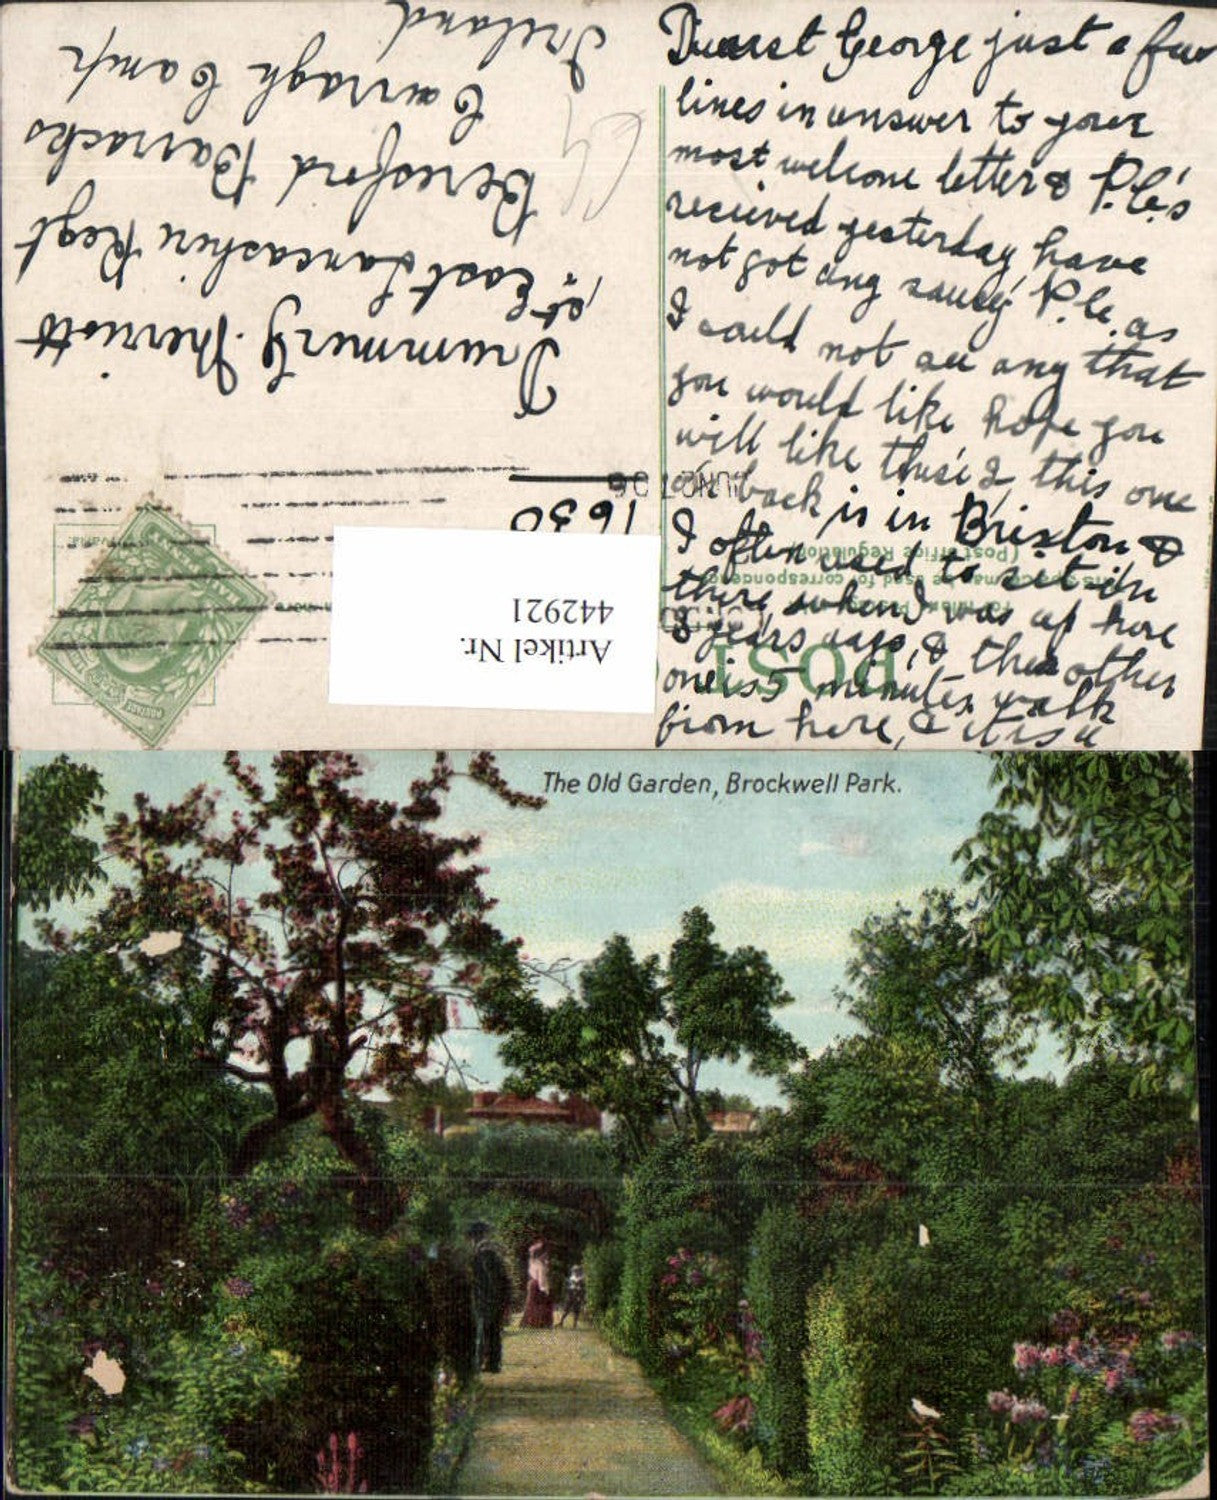 Dearest George just a few
lines in answer to your
most welcome letter & P.C.'s
recieved yesterday, have
not got any saucy P.C. as
I could not see any that
you would like hope you
will like these 2, this one
on back is in Brixton &
I often used to sit in
there, when I was up here
8 years ago, & the other
one is 5 minutes walk
from here, & it is a
POST
(Post Office Regulation).
JUN 27 06
1630
Drummer G. Merriott
1st East Lancashire Regt
Beresford Barracks
Curragh Camp
Ireland
Artikel Nr.
442921
The Old Garden, Brockwell Park.